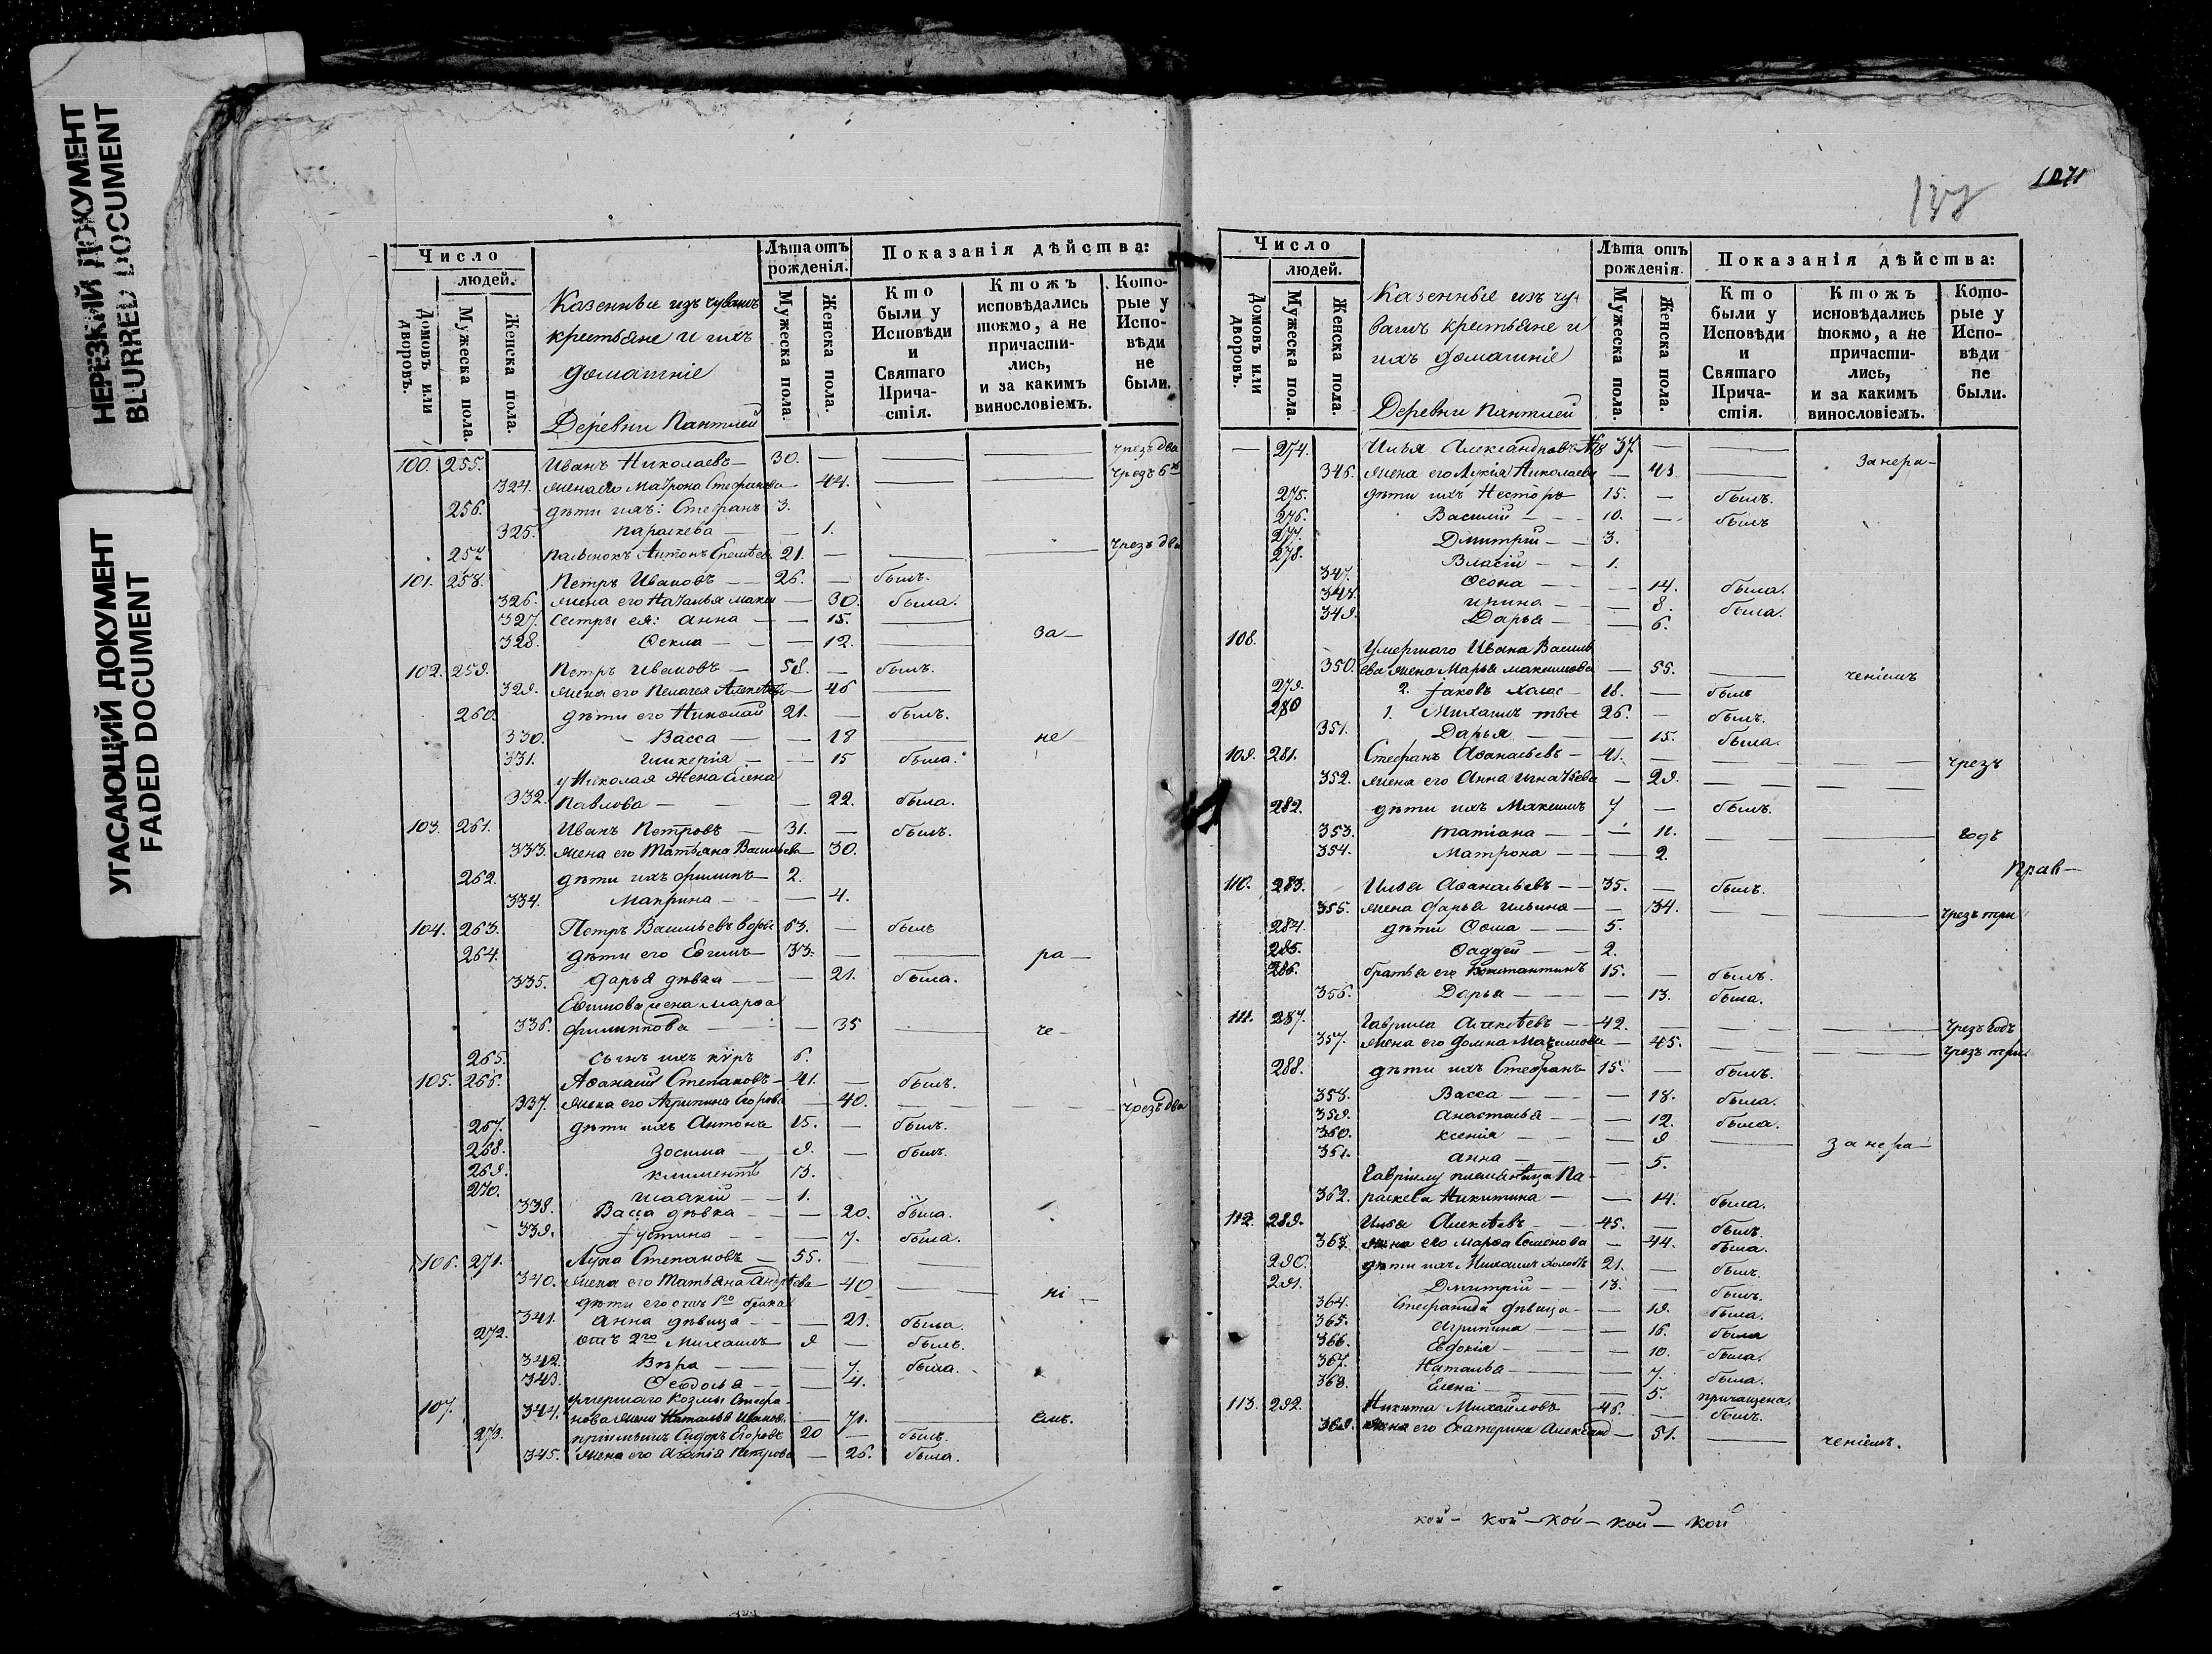 НЕРЕЗКИЙ ДОКУМЕНТ
BLURRED DOCUMENT
УГАСАЮЩИЙ ДОКУМЕНТ
FADED DOCUMENT
Число
людей.
Домовъ или дворовъ.
Мужеска пола.
Женска пола.
Казенные изъ чувашъ
крестьяне и ихъ
домашніе
Деревни Пантией
Лѣта отъ
рожденія.
Мужеска пола.
Женска пола.
Показанія дѣйства:
Кто были у Исповѣди и Святаго Причастія.
Ктожъ исповѣдались токмо, а не причастились, и за какимъ винословіемъ.
Которые у Исповѣди не были.
100. 255. Иванъ Николаевъ — 30. — — — чрезъ два
324. жена его Матрона Стефанова — 44. — — чрезъ 6
256. дѣти ихъ: Стефанъ 3.
325. Параскева — — 1.
257. Антонъ 21. — — — чрезъ два
101. 258. Петръ Ивановъ — — 26. — былъ.
326. жена его Наталья — 30. была.
327. сестры ея: Анна — — 15. —
328. Ѳекла — — 12. — за —
102. 259. Петръ Ивановъ — 58. — былъ.
329. жена его Пелагея Алексѣева — 46 —
260. дѣти его Николай 21. — былъ.
330. Васса — — 18 — не
331. Гликерія — — 15 была.
у Николая жена Елена
332. Павлова — — — 22. была.
103. 261. Иванъ Петровъ — 31. — былъ.
333. жена его Татьяна Васильева — 30.
262. дѣти ихъ Филипъ 2.
334. Макрина — — 4.
104. 263. Петръ Васильевъ вдовъ 63. — былъ
264. дѣти его Евѳимъ 33. — — ра —
335. Дарья дѣвка — — 21. была.
Евѳимова жена Марѳа
336. Филиппова — — 35 — че —
265. сынъ ихъ Кѵръ 6.
105. 266. Аѳанасій Степановъ — 41. — былъ.
337. жена его Агрипина Егорова — 40. — — чрезъ два
267. дѣти ихъ Антонъ 15. — былъ.
268. Зосима — 9. — былъ.
269. Климентъ 13.
270. Исаакій — — 1.
338. Васса дѣвка — — 20. была.
339. Іустина — — 7. была.
106. 271. Лука Степановъ — 55. — —
340. жена его Татьяна Андрѣева — 40 — — ні —
дѣти его отъ 1го брака
341. Анна дѣвица — — 21. была.
272. отъ 2го Михаилъ 9 — былъ.
342. Вѣра — — 7. была.
343. Ѳедосья — 4.
107. умершаго Козмы Стефа-
344. нова жена Наталья Иванова — 71. — емъ.
273. пріимышъ Сидоръ Егоровъ 20 — былъ.
345. жена его Агапія Петрова — 26. была.
137
1071
Число
людей.
Домовъ или дворовъ.
Мужеска пола.
Женска пола.
Казенные изъ чу-
вашъ крестьяне и
ихъ домашніе
Деревни Пантией
Лѣта отъ
рожденія.
Мужеска пола.
Женска пола.
Показанія дѣйства:
Кто были у Исповѣди и Святаго Причастія.
Ктожъ исповѣдались токмо, а не причастились, и за какимъ винословіемъ.
Которые у Исповѣди не были.
— 274. Илья Александровъ 37 — —
346. жена его Лукія Николаева — 43 — за нера —
275. дѣти ихъ Несторъ 15. — былъ.
276. Василій — 10. — былъ
277. Дмитрій — 3.
278. Власій — 1.
347. Ѳеона — — 14. была.
348. Ирина — — 8. была.
349. Дарья — — 6.
108. Умершаго Ивана Василь
350. ева жена Марья Максимова — 55. — ченіемъ
279. 2. Іаковъ холос — 18. — былъ
280 1. Михаилъ 26. — былъ.
351. Дарья — — 15. была.
109. 281. Стефанъ Аѳанасьевъ — 41. — — — чрезъ
352. жена его Анна Игнатьева — 29. — —
282. дѣти ихъ Максимъ 7 — былъ.
353. Татіана — — 11. — — годъ
354. Матрона — — 2.
Прав —
110. 283. Илья Аѳанасьевъ — 35. — былъ.
355. жена Дарья Ильина — 34. — — чрезъ три
284. дѣти Ѳома — 5.
285. Ѳаддей — 2.
286. братья его Константинъ 15. — былъ.
356. Дарья — — 13. была.
111. 287. Гаврила Алексѣевъ — 42. — — — чрезъ годъ
357. жена его Домна Максимова — 45. — — чрезъ три
288. дѣти ихъ Стефанъ 15. — былъ.
358. Васса — — 18. была.
359. Анастасья — — 12. была.
360. Ксенія — — 9 — за нера —
361. Анна — — 5.
Гаврилу племяница Па-
362. раскева Никитина — — 14. была.
112. 289. Илья Алексѣевъ — 45. — былъ.
363. жена его Марѳа Семенова — 44. была.
290. дѣти ихъ Михаилъ холостъ 21. — былъ.
291. Дмитрій — 13. — былъ.
364. Стефанида дѣвица — 19. была.
365. Агрипина — — 16. была
366. Евдокія — — 10. была.
367. Наталья — — 7. была.
368. Елена — — 5. причащена.
113. 292. Никита Михайловъ 46. — былъ.
369. жена его Екатерина Александ — 51. — ченіемъ.
кой — кой — кой — кой — кой